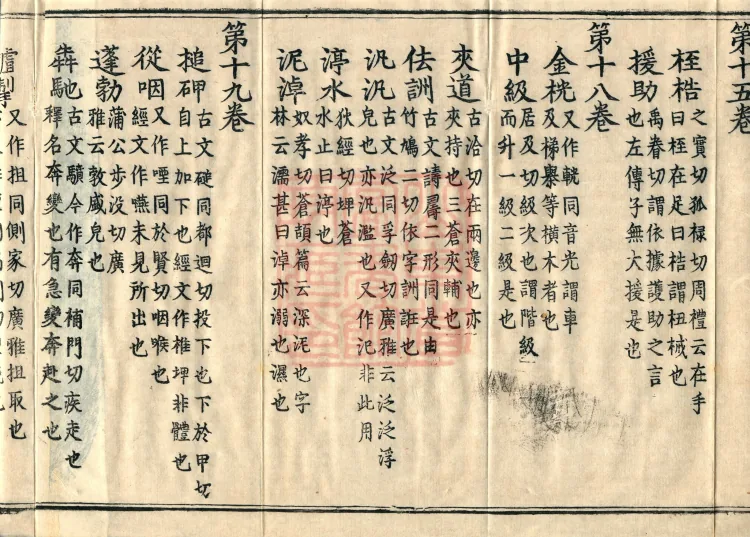 第十五卷
桎梏之實切孤祿切周禮云在手
曰桎在足曰梏謂杻械也
援助禹眷切謂依據護助之言
也左傳子無大援是也
第十八卷
金桄又作軦同音光謂車
及梯轝等橫木者也
中級居及切級次也謂階級
而升一級二級是也
夾道古洽切在兩邊也亦
夾持也三蒼夾輔也
佉訓古文譸二形同是由
竹鳩二切依字訓誑也
汎汎古文泛同孚劒切廣雅云泛泛浮
皃也亦汎濫也又作氾非此用
渟水狄經切埤蒼
水止曰渟也
泥淖奴孝切蒼頡篇云深泥也字
林云濡甚曰淖亦溺也濕也
第十九卷
搥古文磓同都迴切投下也下於甲切
自上加下也經文作椎坪非體也
從咽又作㖶同於賢切咽喉也
經文作嚥未見所出也
蓬勃蒲公步沒切廣
雅云敦盛皃也
犇馳古文驞今作奔同補門切疾走也
釋名奔變也有急變奔赴之也
又作抯同側家切廣雅抯取也